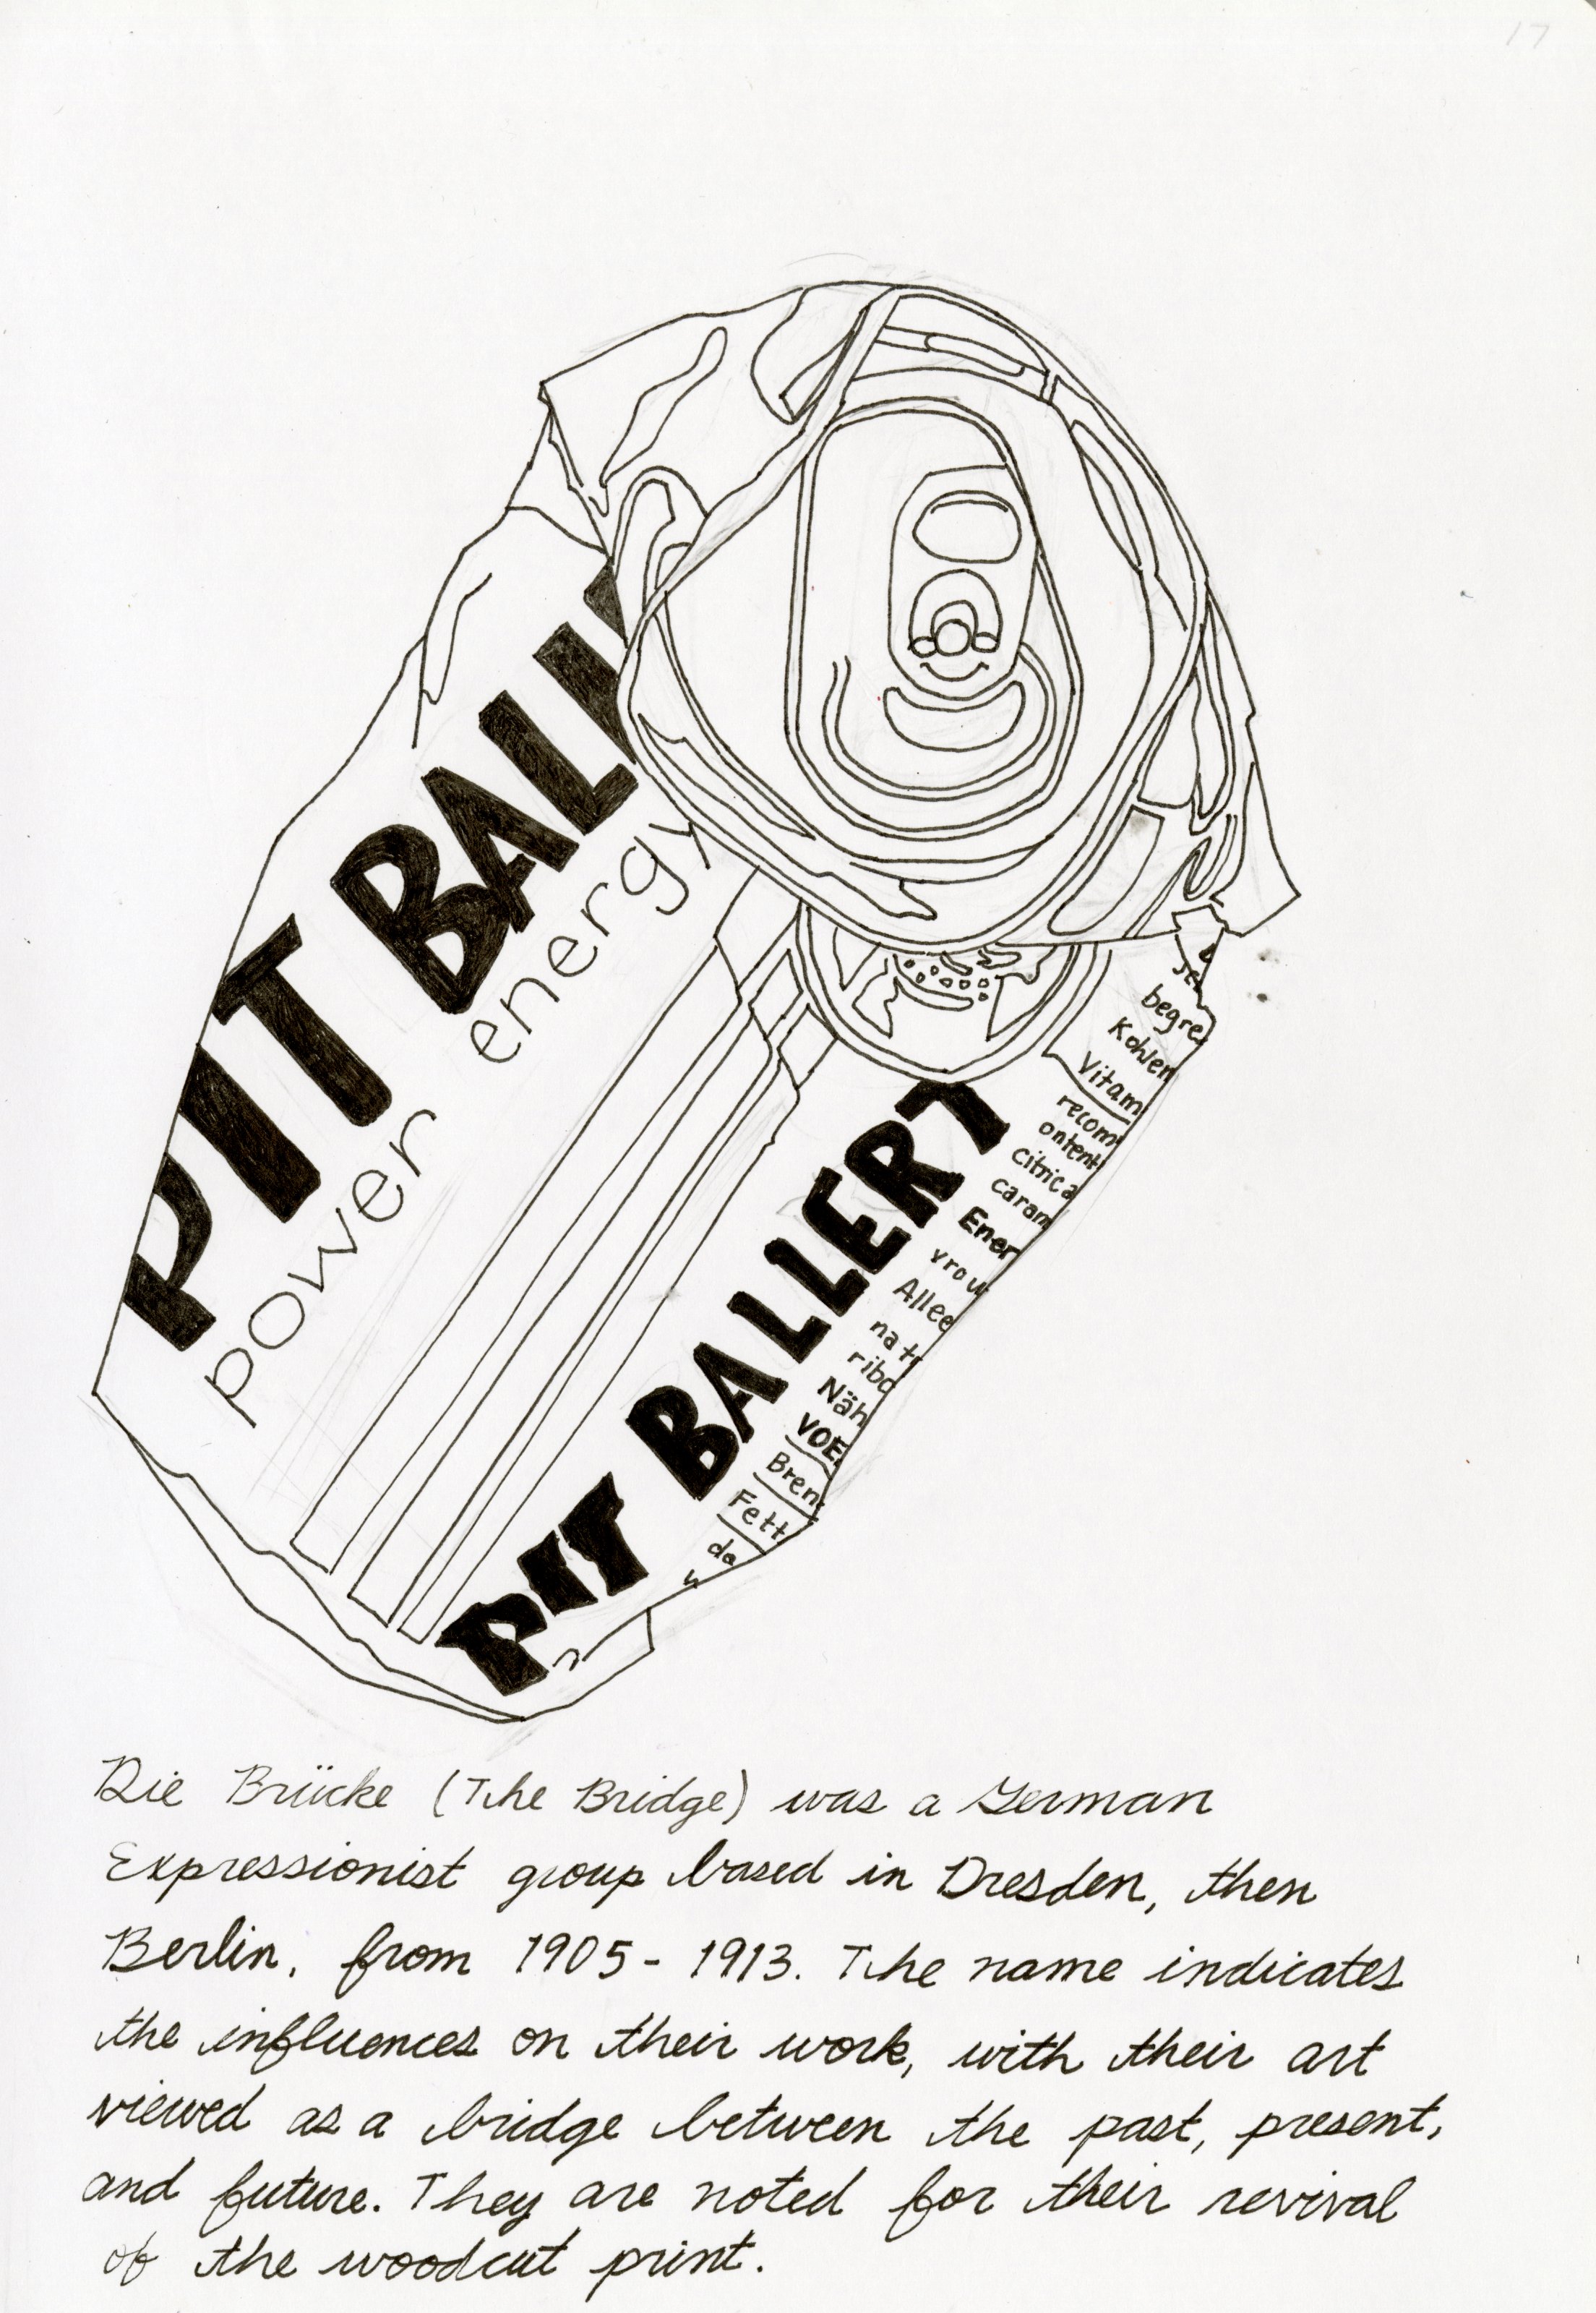 17
PIT BALL
power energy
PIT BALLERT
begre
Kohlen
Vitam
recom
ontent
citrica
caram
Ener
vrou
Allee
natr
ribo
Näh
VOE
Bren
Fett
da
Die Brücke (The Bridge) was a German
Expressionist group based in Dresden, then
Berlin, from 1905 - 1913. The name indicates
the influences on their work, with their art
viewed as a bridge between the past, present,
and future. They are noted for their revival
of the woodcut print.